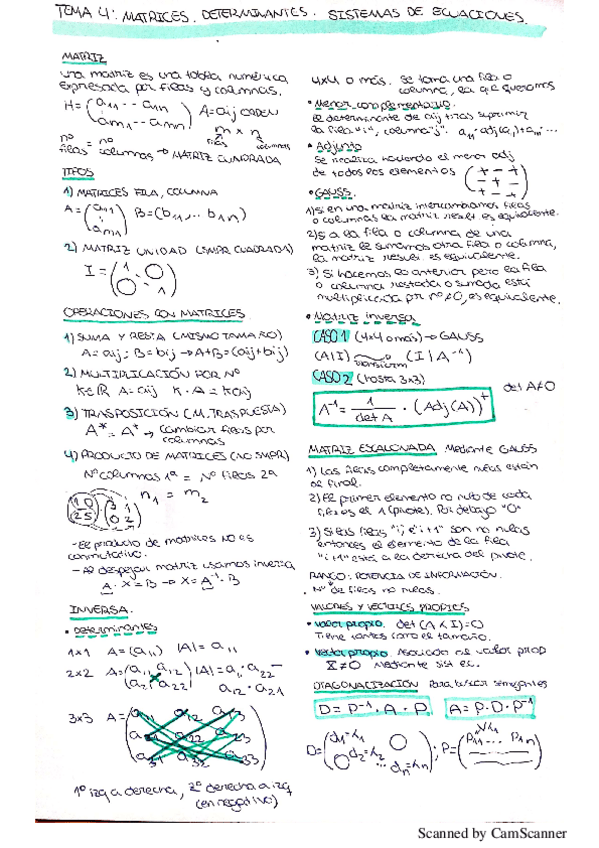 TEMA 4: MATRICES. DETERMINANTES. SISTEMAS DE ECUACIONES.
MATRIZ
una matriz es una tabla numérica
expresada por filas y columnas.
M = (a11 -- a1n
am1 -- amn) A = aij ORDEN
m x n
filas columnas
nº filas = nº columnas → MATRIZ CUADRADA
TIPOS
1) MATRICES FILA, COLUMNA
A = (a11
⋮
am1) B = (b11, ... b1n)
2) MATRIZ UNIDAD (SMPR CUADRADA)
I = (1 0
0 1)
OPERACIONES CON MATRICES
1) SUMA Y RESTA (MISMO TAMAÑO)
A = aij; B = bij → A+B = (aij+bij)
2) MULTIPLICACIÓN POR Nº
K∈R A = aij K · A = kaij
3) TRASPOSICIÓN (M. TRASPUESTA)
→ cambiar filas por
columnas
4) PRODUCTO DE MATRICES (NO SMPR)
Nº columnas 1ª = Nº filas 2ª
(1 0
2 5) · (3 1
0 2) n1 = m2
- El producto de matrices NO es
conmutativo.
- Al despejar matriz usamos inversa
A · X = B → X = A⁻¹ · B
INVERSA.
• Determinantes
1x1 A = (a11) |A| = a11
2x2 A = (a11 a12
a21 a22) |A| = a11 · a22 −
a12 · a21
3x3 A = (a11 a12 a13
a21 a22 a23
a31 a32 a33)
1º izq a derecha, 2º derecha a izq
(en negativo)
4x4 o más. Se toma una fila o
columna, la que queramos
• Menor complementario.
El determinante de aij tras suprimir
la fila "i", columna "j". a11 · adj(a11)+a12 ...
• Adjunto
Se realiza haciendo el menor adj
de todos los elementos (+ − +
− + −
+ − +)
• GAUSS.
1) Si en una matriz intercambiamos filas
o columnas la matriz result. es equivalente.
2) Si a la fila o columna de una
matriz le sumamos otra fila o columna,
la matriz result. es equivalente.
3) Si hacemos lo anterior pero la fila
o columna restada o sumada está
multiplicada por nº≠0, es equivalente.
• Matriz inversa
CASO 1 (4x4 o más) → GAUSS
(A|I) (I|A⁻¹)
CASO 2 (hasta 3x3)
det A≠0
A⁻¹ = 1/det A · (Adj(A))ᵗ
MATRIZ ESCALONADA Mediante GAUSS
1) Las filas completamente nulas están
al final.
2) El primer elemento no nulo de cada
fila es el 1 (pivote). Por debajo "0"
3) Si las filas "i" e "i+1" son no nulas
entonces el elemento de la fila
"i+1" está a la derecha del pivote.
RANGO: POTENCIA DE INFORMACIÓN.
Nº de filas no nulas.
VALORES Y VECTORES PROPIOS
• Valor propio. det (A-λI)=0
Tiene tantos como el tamaño.
• Vector propio Asociado al valor prop
X≠0 Mediante sist ec.
DIAGONALIZACIÓN Para buscar semejantes
D = P⁻¹ · A · P A = P · D · P⁻¹
D = (d1=λ1 0
0 d2=λ2
... dn=λn); P = (P11 ... P1n)
Scanned by CamScanner